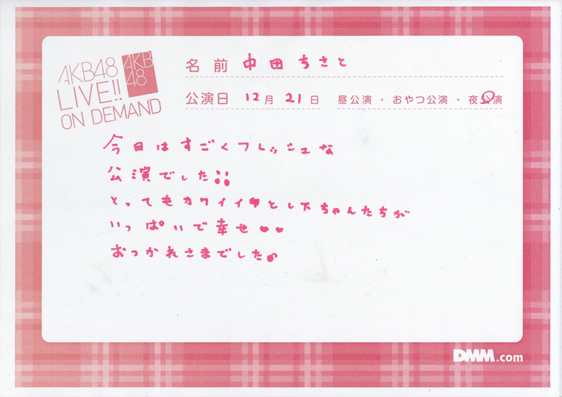 AKB48
LIVE!!
ON DEMAND
AKB
48
名前 中田ちさと
公演日 12月21日 昼公演・おやつ公演・夜公演
今日はすごくフレッシュな
公演でした!!
とってもカワイイ♥とし下ちゃんたちが
いっぱいで幸せ♥♥
おつかれさまでした♪
DMM.com